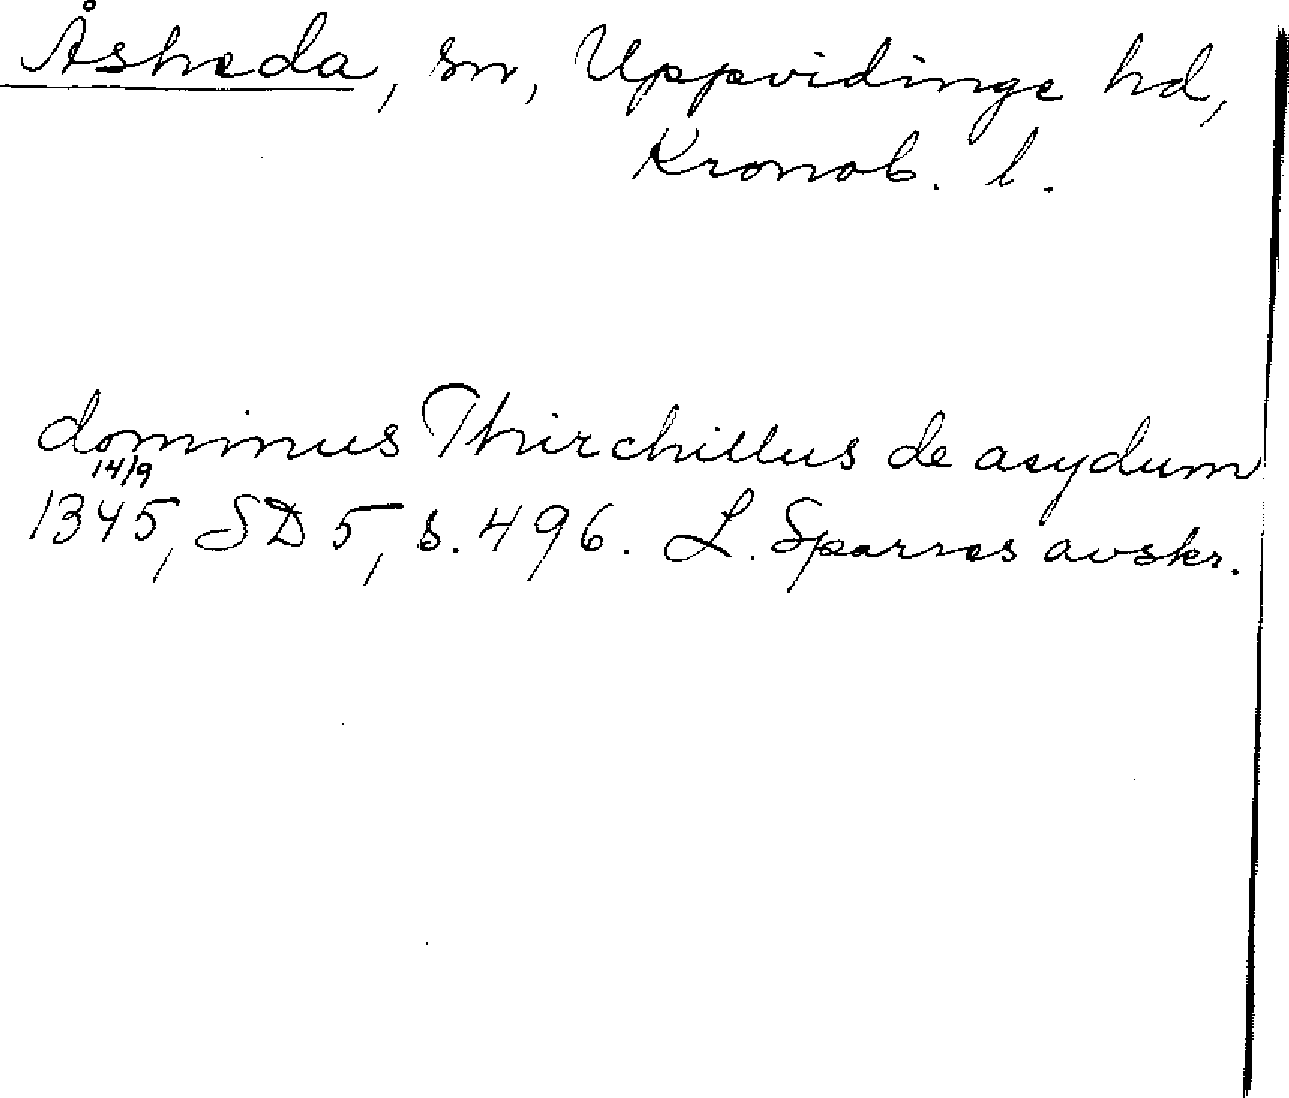 Åsheda, sn, Uppvidinge hd,
Kronob. l.
dominus Thirchillus de asydum
14/9
1345, SD 5, s. 496. L. Sparres avskr.